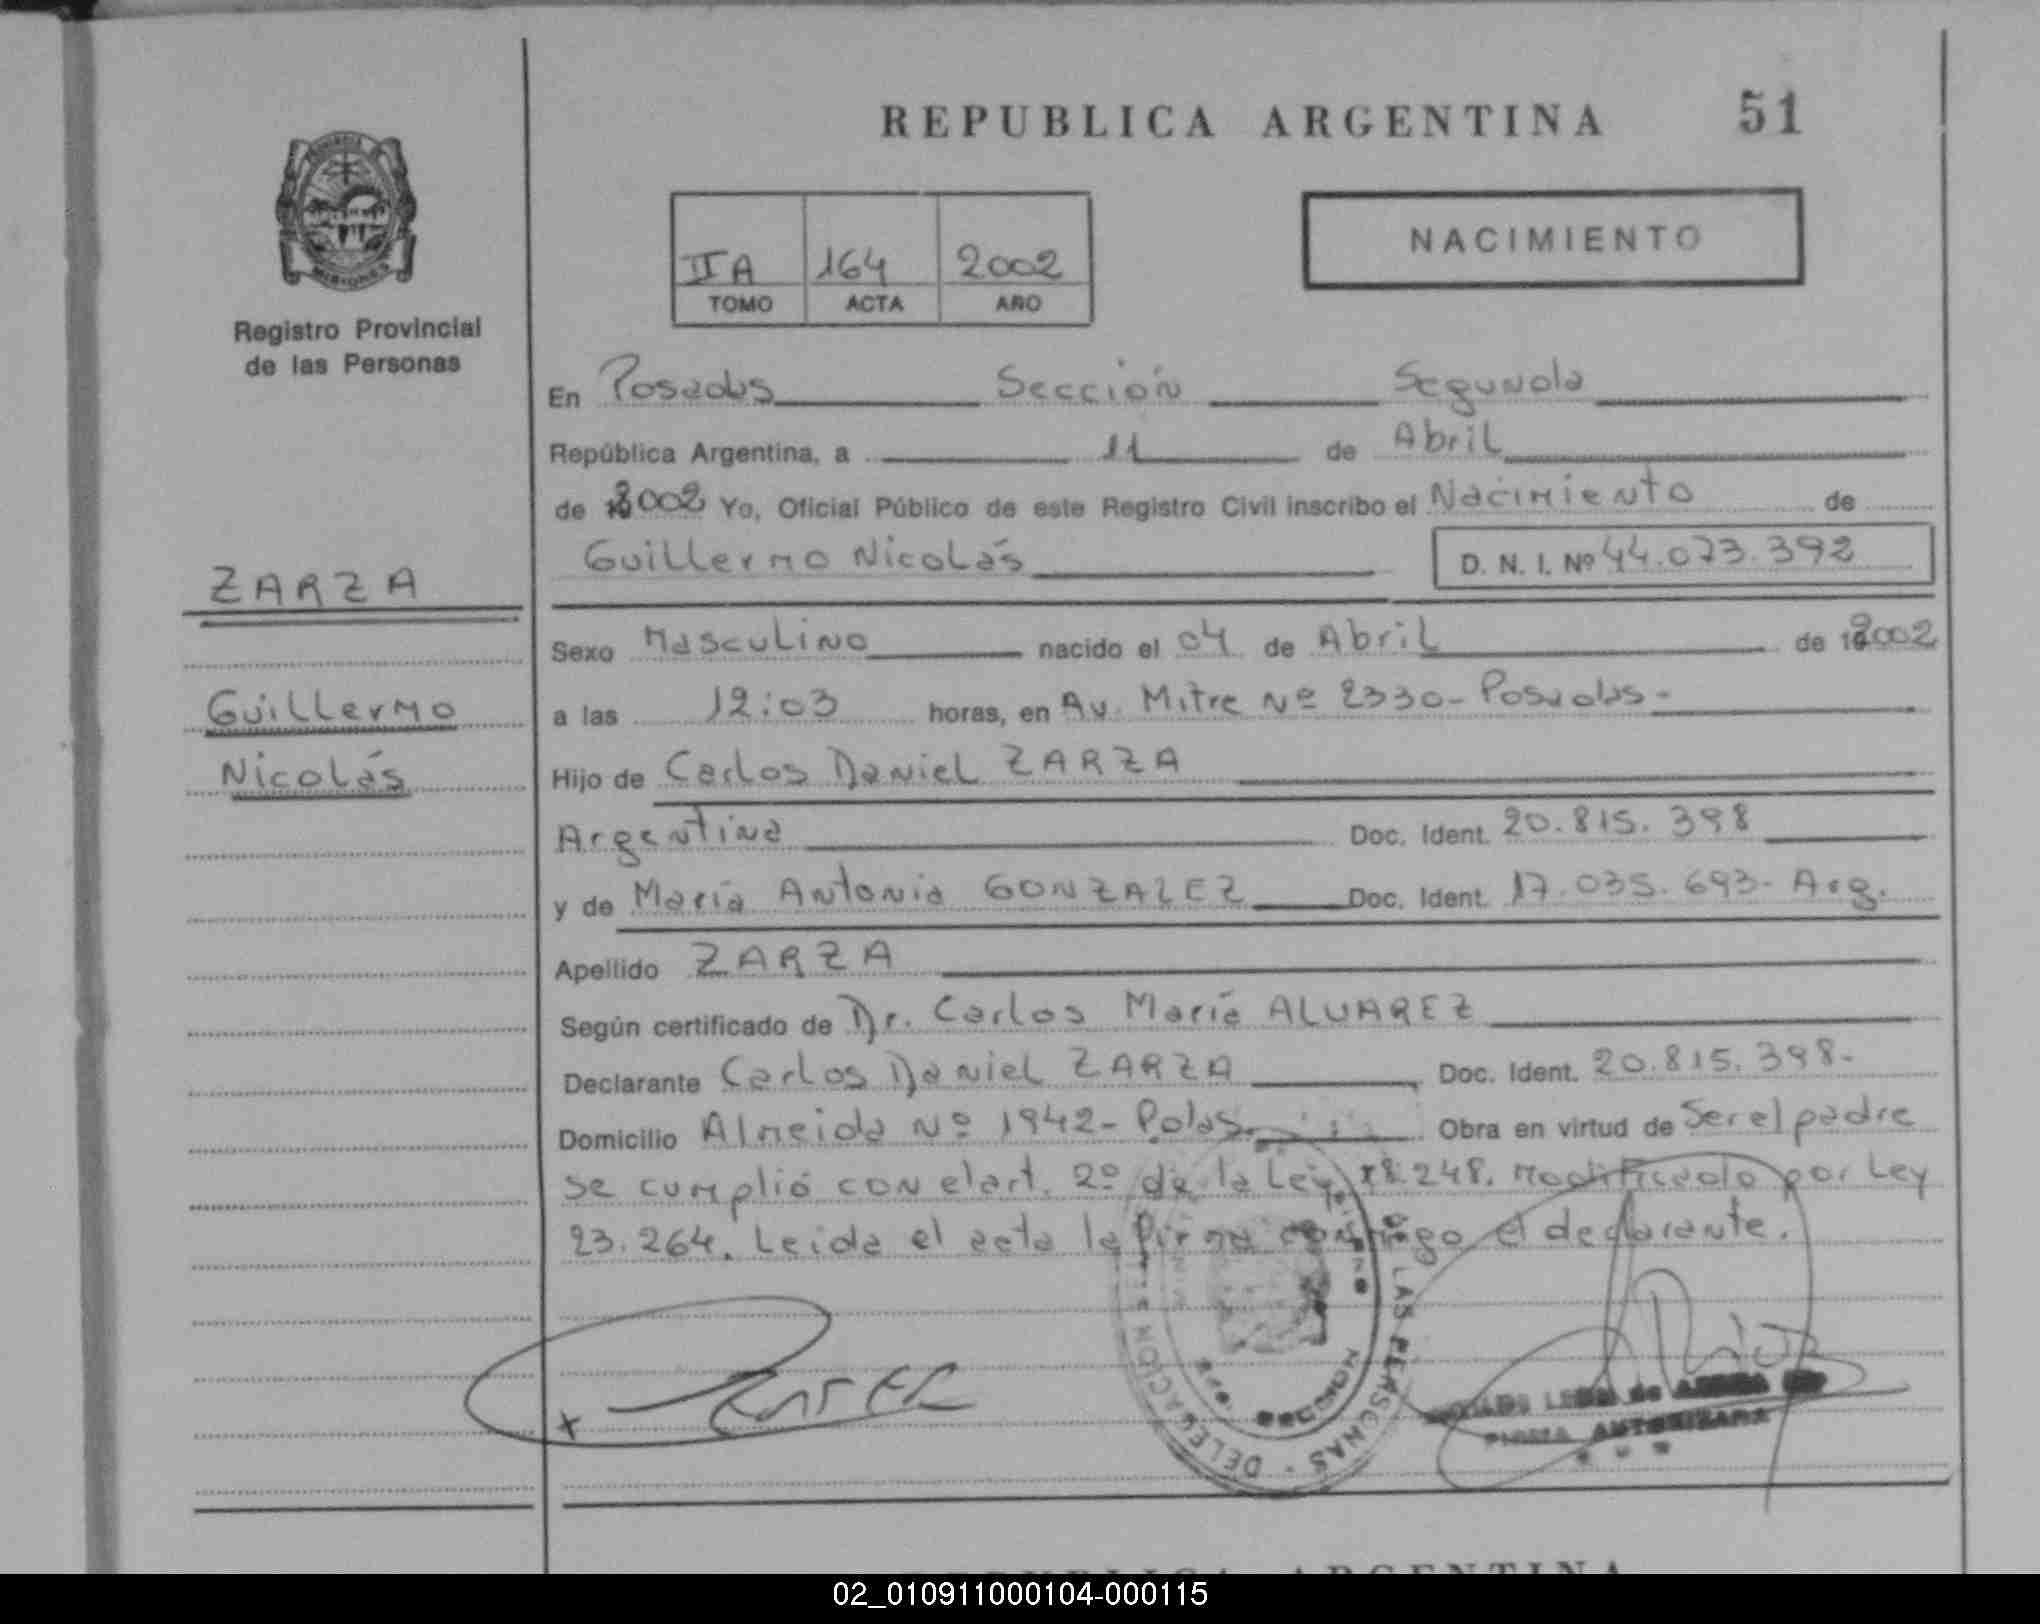 REPUBLICA ARGENTINA 51
IIA 164 2002
TOMO ACTA AÑO
NACIMIENTO
Registro Provincial
de las Personas
En Posadas Sección Segunda
República Argentina, a 11 de Abril
de 2002 Yo, Oficial Público de este Registro Civil inscribo el Nacimiento de
Guillermo Nicolás D. N. I. Nº 44.073.392
ZARZA
Guillermo
Nicolás
Sexo Masculino nacido el 04 de Abril de 2002
a las 12:03 horas, en Av. Mitre Nº 2330- Posadas-
Hijo de Carlos Daniel ZARZA
Argentina Doc. Ident. 20.815.398
y de María Antonia GONZALEZ Doc. Ident. 17.035.693- Arg.
Apellido ZARZA
Según certificado de Dr. Carlos María ALVAREZ
Declarante Carlos Daniel ZARZA Doc. Ident. 20.815.398-
Domicilio Almeida Nº 1942- Pdas. Obra en virtud de Ser el padre
se cumplió con el art. 2º de la Ley 18.248. Modificado por Ley
23.264. Leida el acta la firma conmigo el declarante.
DELEGACION
LAS PERSONAS
FIRMA AUTORIZADA
REPUBLICA ARGENTINA
02_010911000104-000115